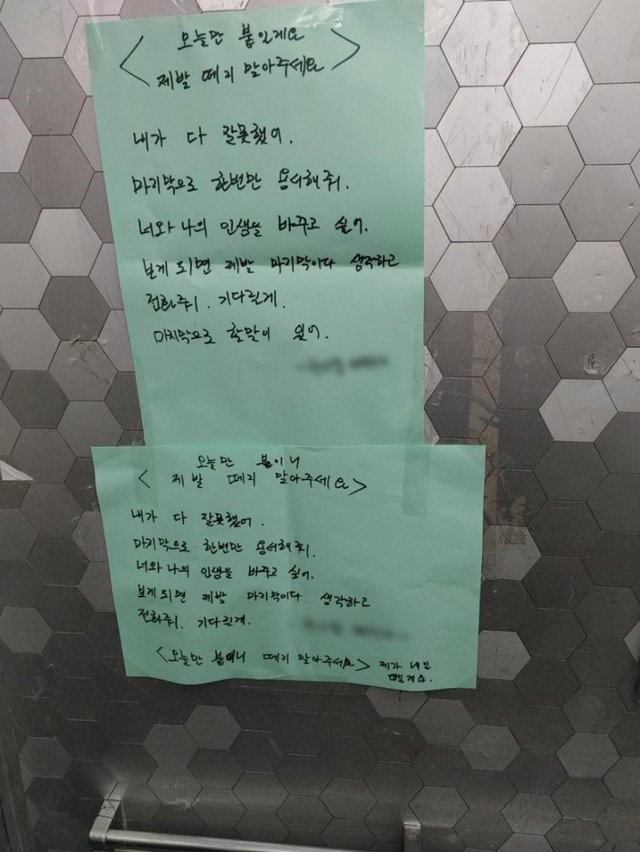 <오늘만 붙일게요
제발 떼지 말아주세요>
내가 다 잘못했어.
마지막으로 한번만 용서해줘.
너와 나의 인생을 바꾸고 싶어.
보게 되면 제발 마지막이다 생각하고
전화줘. 기다릴게.
마지막으로 할말이 있어.
오늘만 붙이니
<제발 떼지 말아주세요>
내가 다 잘못했어.
마지막으로 한번만 용서해줘.
너와 나의 인생을 바꾸고 싶어.
보게되면 제발 마지막이다 생각하고
전화줘. 기다릴게.
<오늘만 붙이니 떼지 말아주세요> 제가